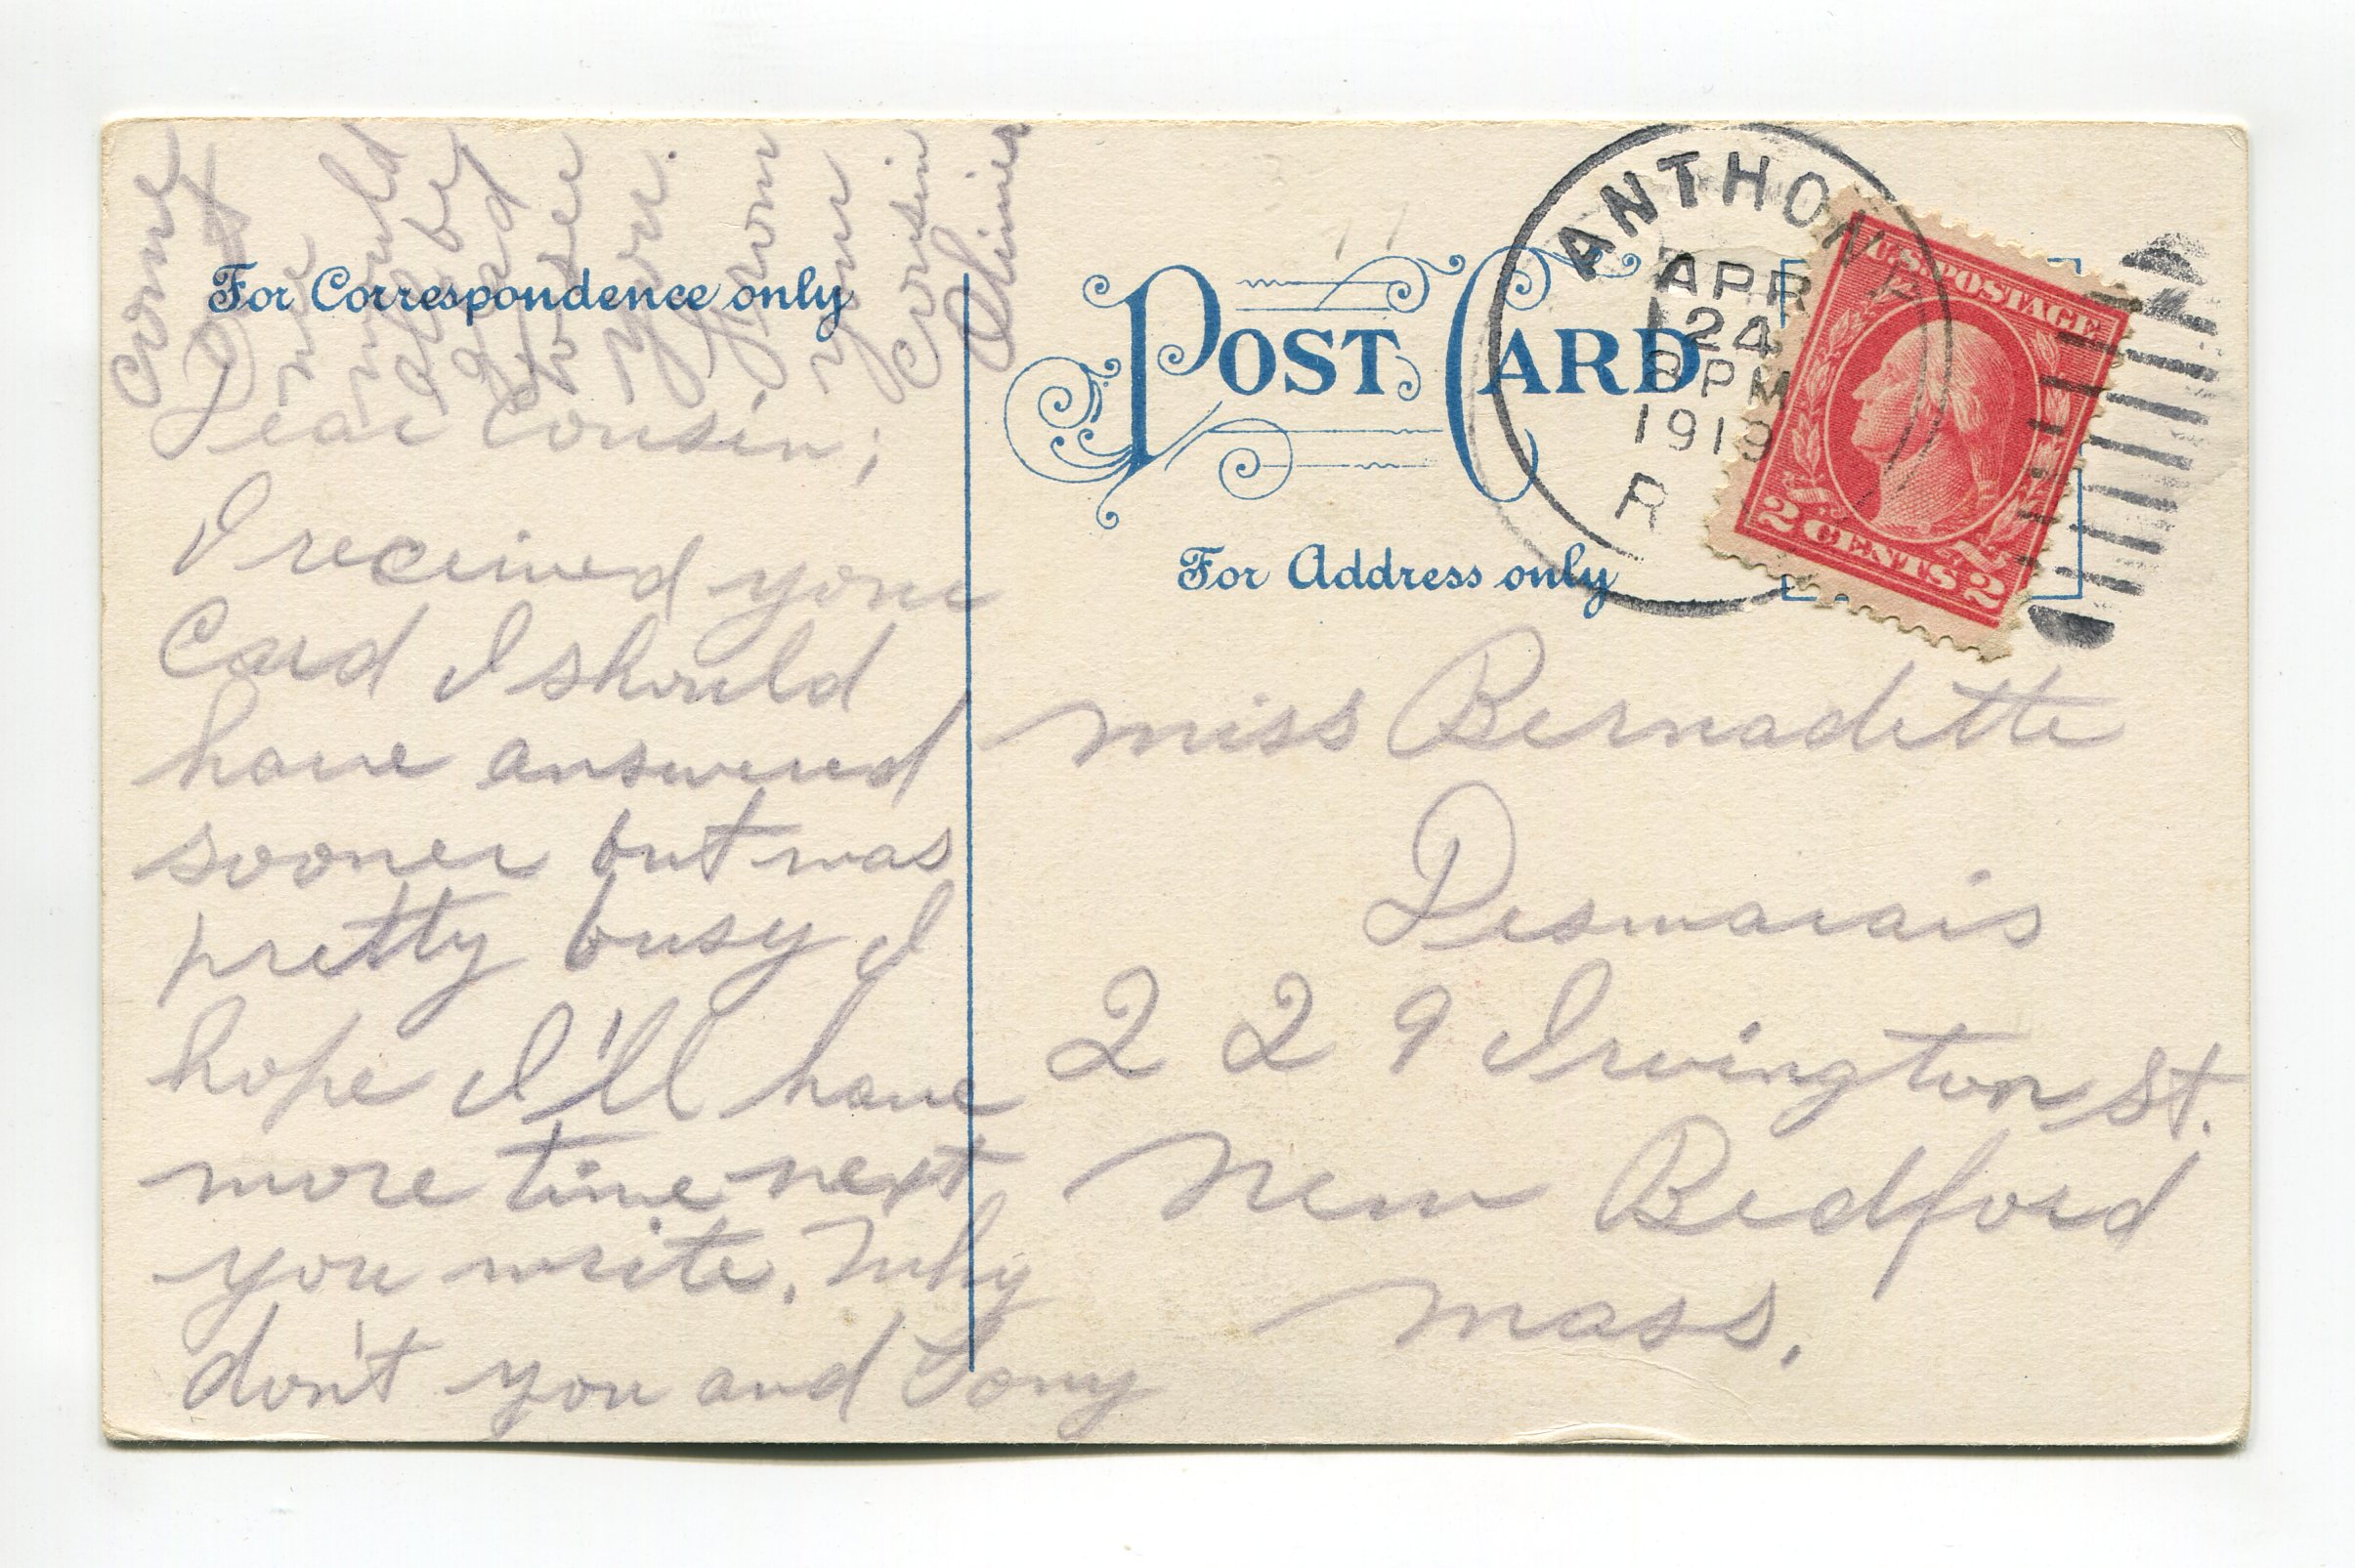 For Correspondence only
Dear Cousin;
I received your
Card I should
have answered
sooner but was
pretty busy I
hope I'll have
more time next
you write. Why
don't you and Tony
come
we
would
all be
glad
to see
you.
From
your
cousin
POST CARD
For Address only
ANTHONY
APR
24
PM
1919
R
U.S. POSTAGE
2 CENTS 2
Miss Bernadette
Desmarais
229 Irvington St.
New Bedford
Mass.